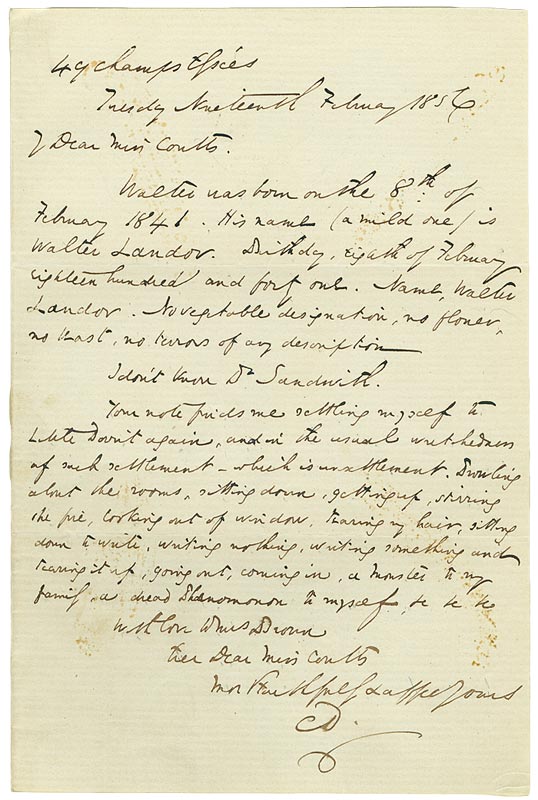 49 Champs Elysées
Tuesday Nineteenth February 1856
My Dear Miss Coutts.
Walter was born on the 8th of
February 1841. His name (a mild one) is
Walter Landor. Birthday, eighth of February
eighteen hundred and forty one. Name, Walter
Landor. No vegetable designation, no flower,
no beast, no terrors of any description
I don't know Dr Sandwith.
Your note finds me settling myself to
Little Dorrit again, and in the usual wretchedness
of such settlement – which is unsettlement. Prowling
about the rooms, sitting down, getting up, stirring
the fire, looking out of window, tearing my hair, sitting
down to write, writing nothing, writing something and
tearing it up, going out, coming in, a Monster to my
family, a dread Phenomenon to myself, &c &c &c
With love to Mrs Brown
Ever Dear Miss Coutts
Most Faithfully & affecy Yours
CD.